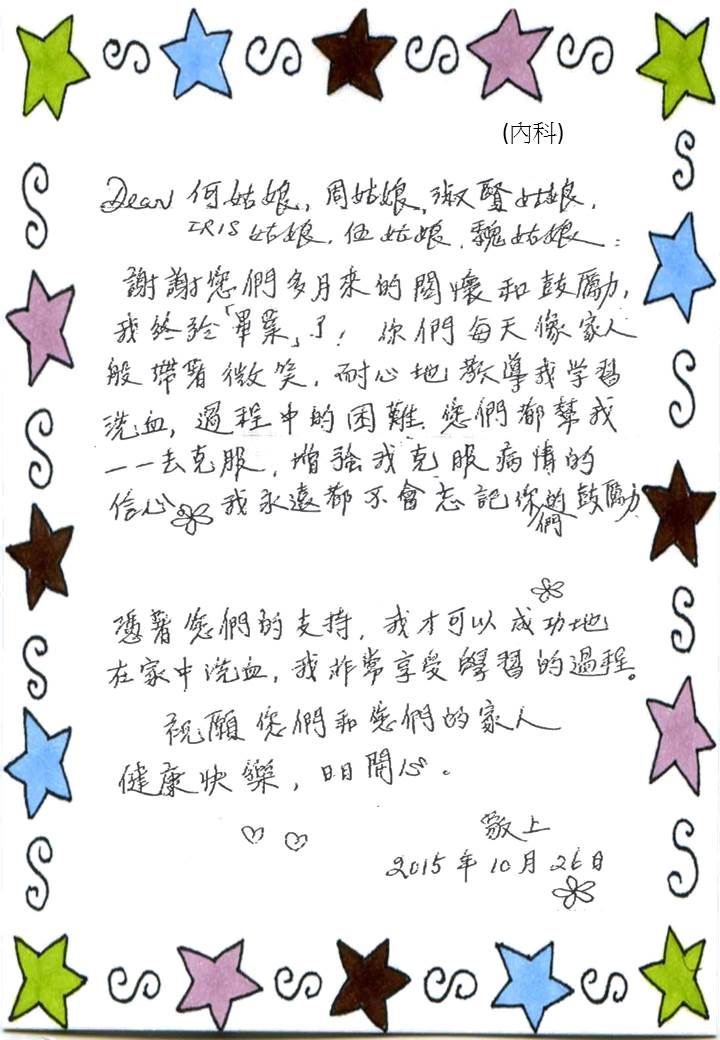 (內科)
Dear 何姑娘, 周姑娘, 淑賢姑娘,
IRIS 姑娘, 伍姑娘, 魏姑娘:
謝謝您們多月來的關懷和鼓勵,
我終於「畢業」了! 你們每天像家人
般帶著微笑, 耐心地教導我学習
洗血, 過程中的困難, 您們都幫我
一一去克服, 增強我克服病情的
信心。我永遠都不會忘記你們的鼓勵
憑著您們的支持, 我才可以成功地
在家中洗血, 我非常享受學習的過程。
祝願您們和您們的家人
健康快樂, 日日開心。
敬上
2015年10月26日